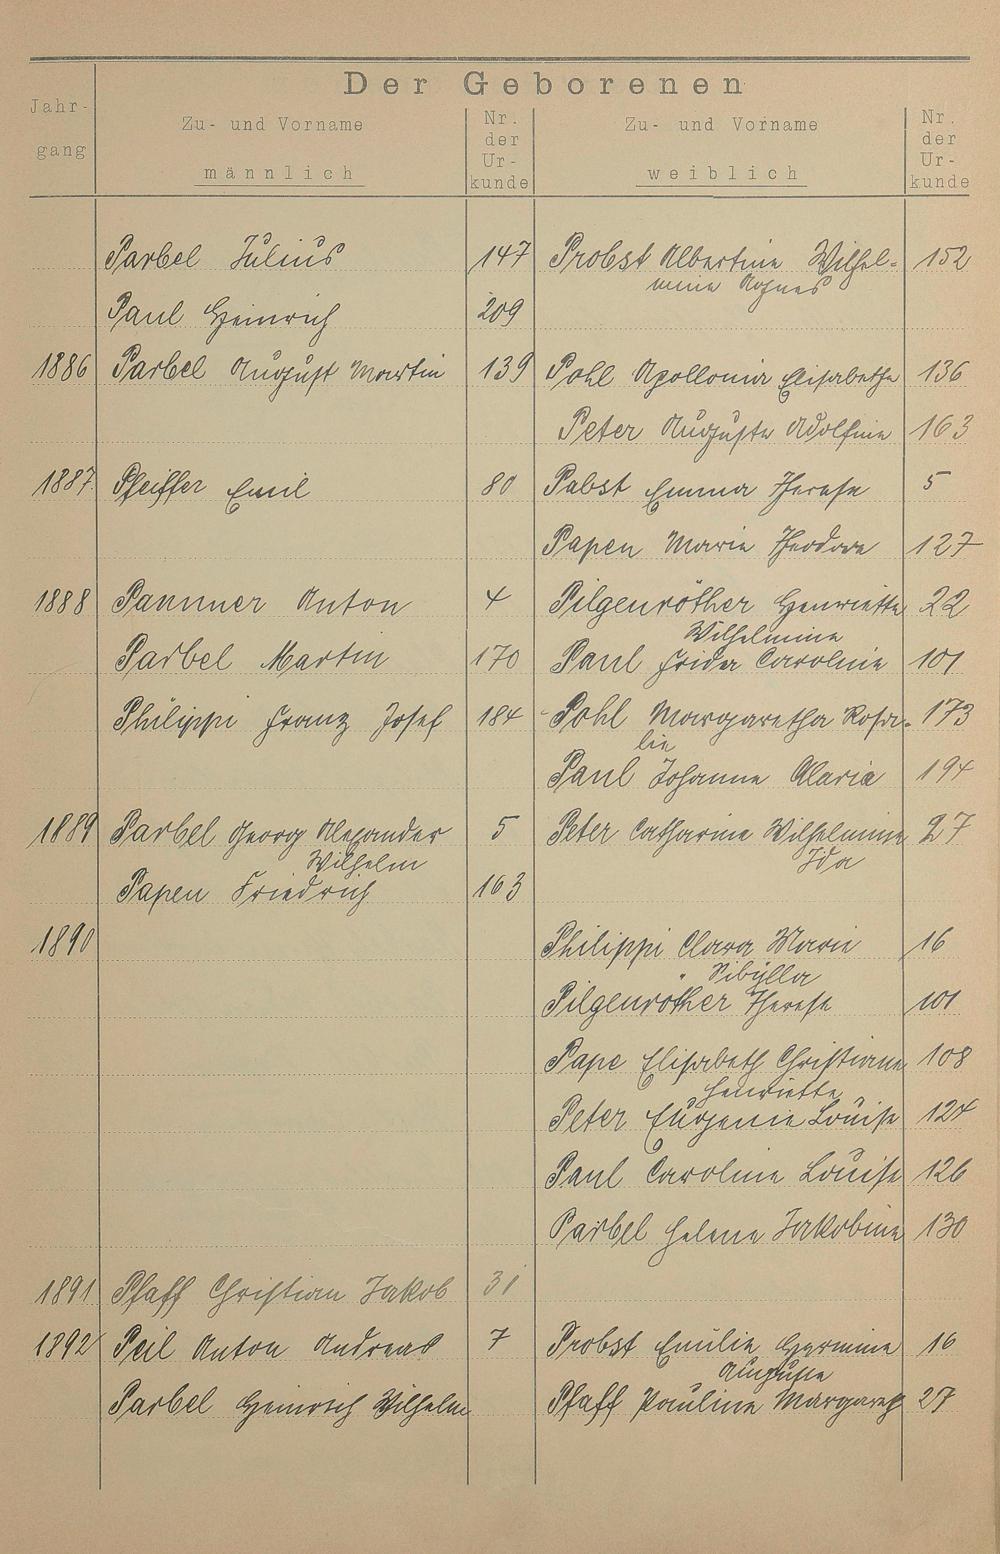 Der Geborenen
Jahr-
gang
Zu- und Vorname
männlich
Nr.
der
Ur-
kunde
Zu- und Vorname
weiblich
Nr.
der
Ur-
kunde
Parbel Julius 147 Probst Albertine Wilhel- 152
mine Agnes
Paul Heinrich 209
1886 Parbel August Martin 139 Pohl Apollonia Elisabetha 136
Peter Auguste Adolfine 163
1887 Pfeiffer Emil 80 Pabst Emma Therese 5
Papen Marie Theodora 127
1888 Pammer Anton 4 Pilgenröther Henriette 22
Wilhelmine
Parbel Martin 170 Paul Frida Caroline 101
Philippi Franz Josef 184 Pohl Margaretha Rosa- 173
lie
Paul Johanna Maria 194
1889 Parbel Georg Alexander 5 Peter Catharina Wilhelmine 27
Wilhelm Ida
Papen Friedrich 163
1890 Philippi Clara Maria 16
" Sibÿlla
Pilgenröther Therese 101
Pape Elisabeth Christiane 108
Henriette
Peter Eugenie Louise 124
Paul Caroline Louise 126
Parbel Helena Jakobine 130
1891 Pfaff Christian Jakob 31
1892 Peil Anton Andreas 7 Probst Emilie Hermine 16
Auguste
Parbel Heinrich Wilhelm Pfaff Pauline Margareth 27